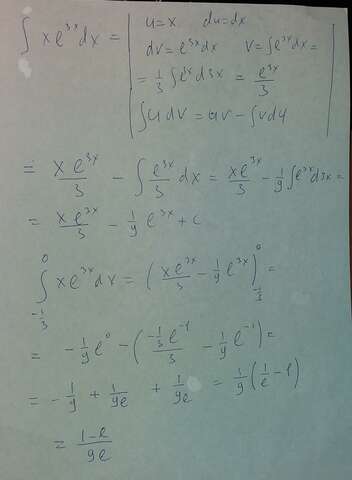 ∫ xe^{3x}dx = | u=x du=dx
dv=e^{3x}dx v=∫e^{3x}dx=
= 1/3 ∫e^{3x}d3x = e^{3x}/3
∫udv=uv-∫vdu |
= xe^{3x}/3 - ∫ e^{3x}/3 dx = xe^{3x}/3 - 1/9 ∫e^{3x}d3x =
= xe^{3x}/3 - 1/9 e^{3x} + c
∫_{-1/3}^{0} xe^{3x}dx = (xe^{3x}/3 - 1/9 e^{3x})_{-1/3}^{0} =
= -1/9 e^0 - (-1/3 e^{-1}/3 - 1/9 e^{-1}) =
= -1/9 + 1/9e + 1/9e = 1/9 (1/e - 1)
= 1-e/9e